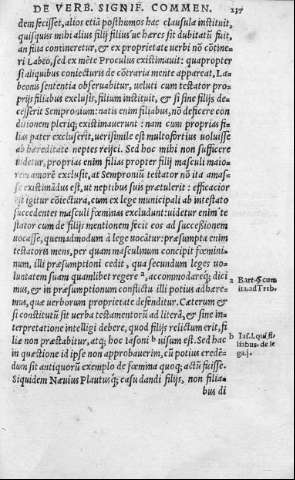 DE VERB. SIGNIF. COMMEN. 237
dem fecisset, alios etiā posthumos hac clausula instituit,
quisquis mihi alius filij filiusúe hæres sit dubitatū fuit,
an filia contineretur, & ex proprietate uerbi nō cōtine-
ri Labeo, sed ex mēte Proculus existimauit: quapropter
si aliquibus coniecturis de cōtraria mente appareat, La-
beonis sententia obseruabitur, ueluti cum testator pro-
prijs filiabus exclusis, filium instituit, & si sine filijs de-
cesserit Sempronium: natis enim filiabus, nō deficere con-
ditionem pleriq; existimauerunt: nam cum proprias fi-
lias pater excluserit, uerisimile est multofortius uoluisse
ab hæreditate neptes reijci. Sed hoc mihi non sufficere
uidetur, proprias enim filias propter filij masculi maio-
rem amorē exclusit, at Sempronijū testator nō ita amas-
se existimādus est, ut neptibus suis prætulerit: efficacior
est igitur cōiectura, cum ex lege municipali ab intestato
succedentes masculi fœminas excludunt: uidetur enim te
stator cum de filijs mentionem fecit eos ad successionem
uocasse, quemadmodum à lege uocātur: præsumpta enim
testatoris mens, per quam masculinum concipit fœmini-
num, illi præsumptioni cedit, qua secundum leges uo-
luntatem suam quamlibet regere a, accommodareq; dici
mus, & in præsumptionum conflictu illi potius adhære-
mus, quæ uerborum proprietate defenditur. Cæterum &
si constitutū sit uerba testamentorū ad literā, & sine in-
terpretatione intelligi debere, quod filijs relictum erit, fi
liæ non præstabitur, atq; hoc Iasoni b uisum est. Sed hac
in quæstione id ipse non approbauerim, cū potius credē-
dum sit antiquorū exemplo de fœmina quoq; actū fuisse.
Siquidem Næuius Plautusq; casu dandi filijs, non filia-
bus di
a Bart. § cum
ita. ad Treb.
b Ias. l. qui fi-
liabus. de le-
ga. j.